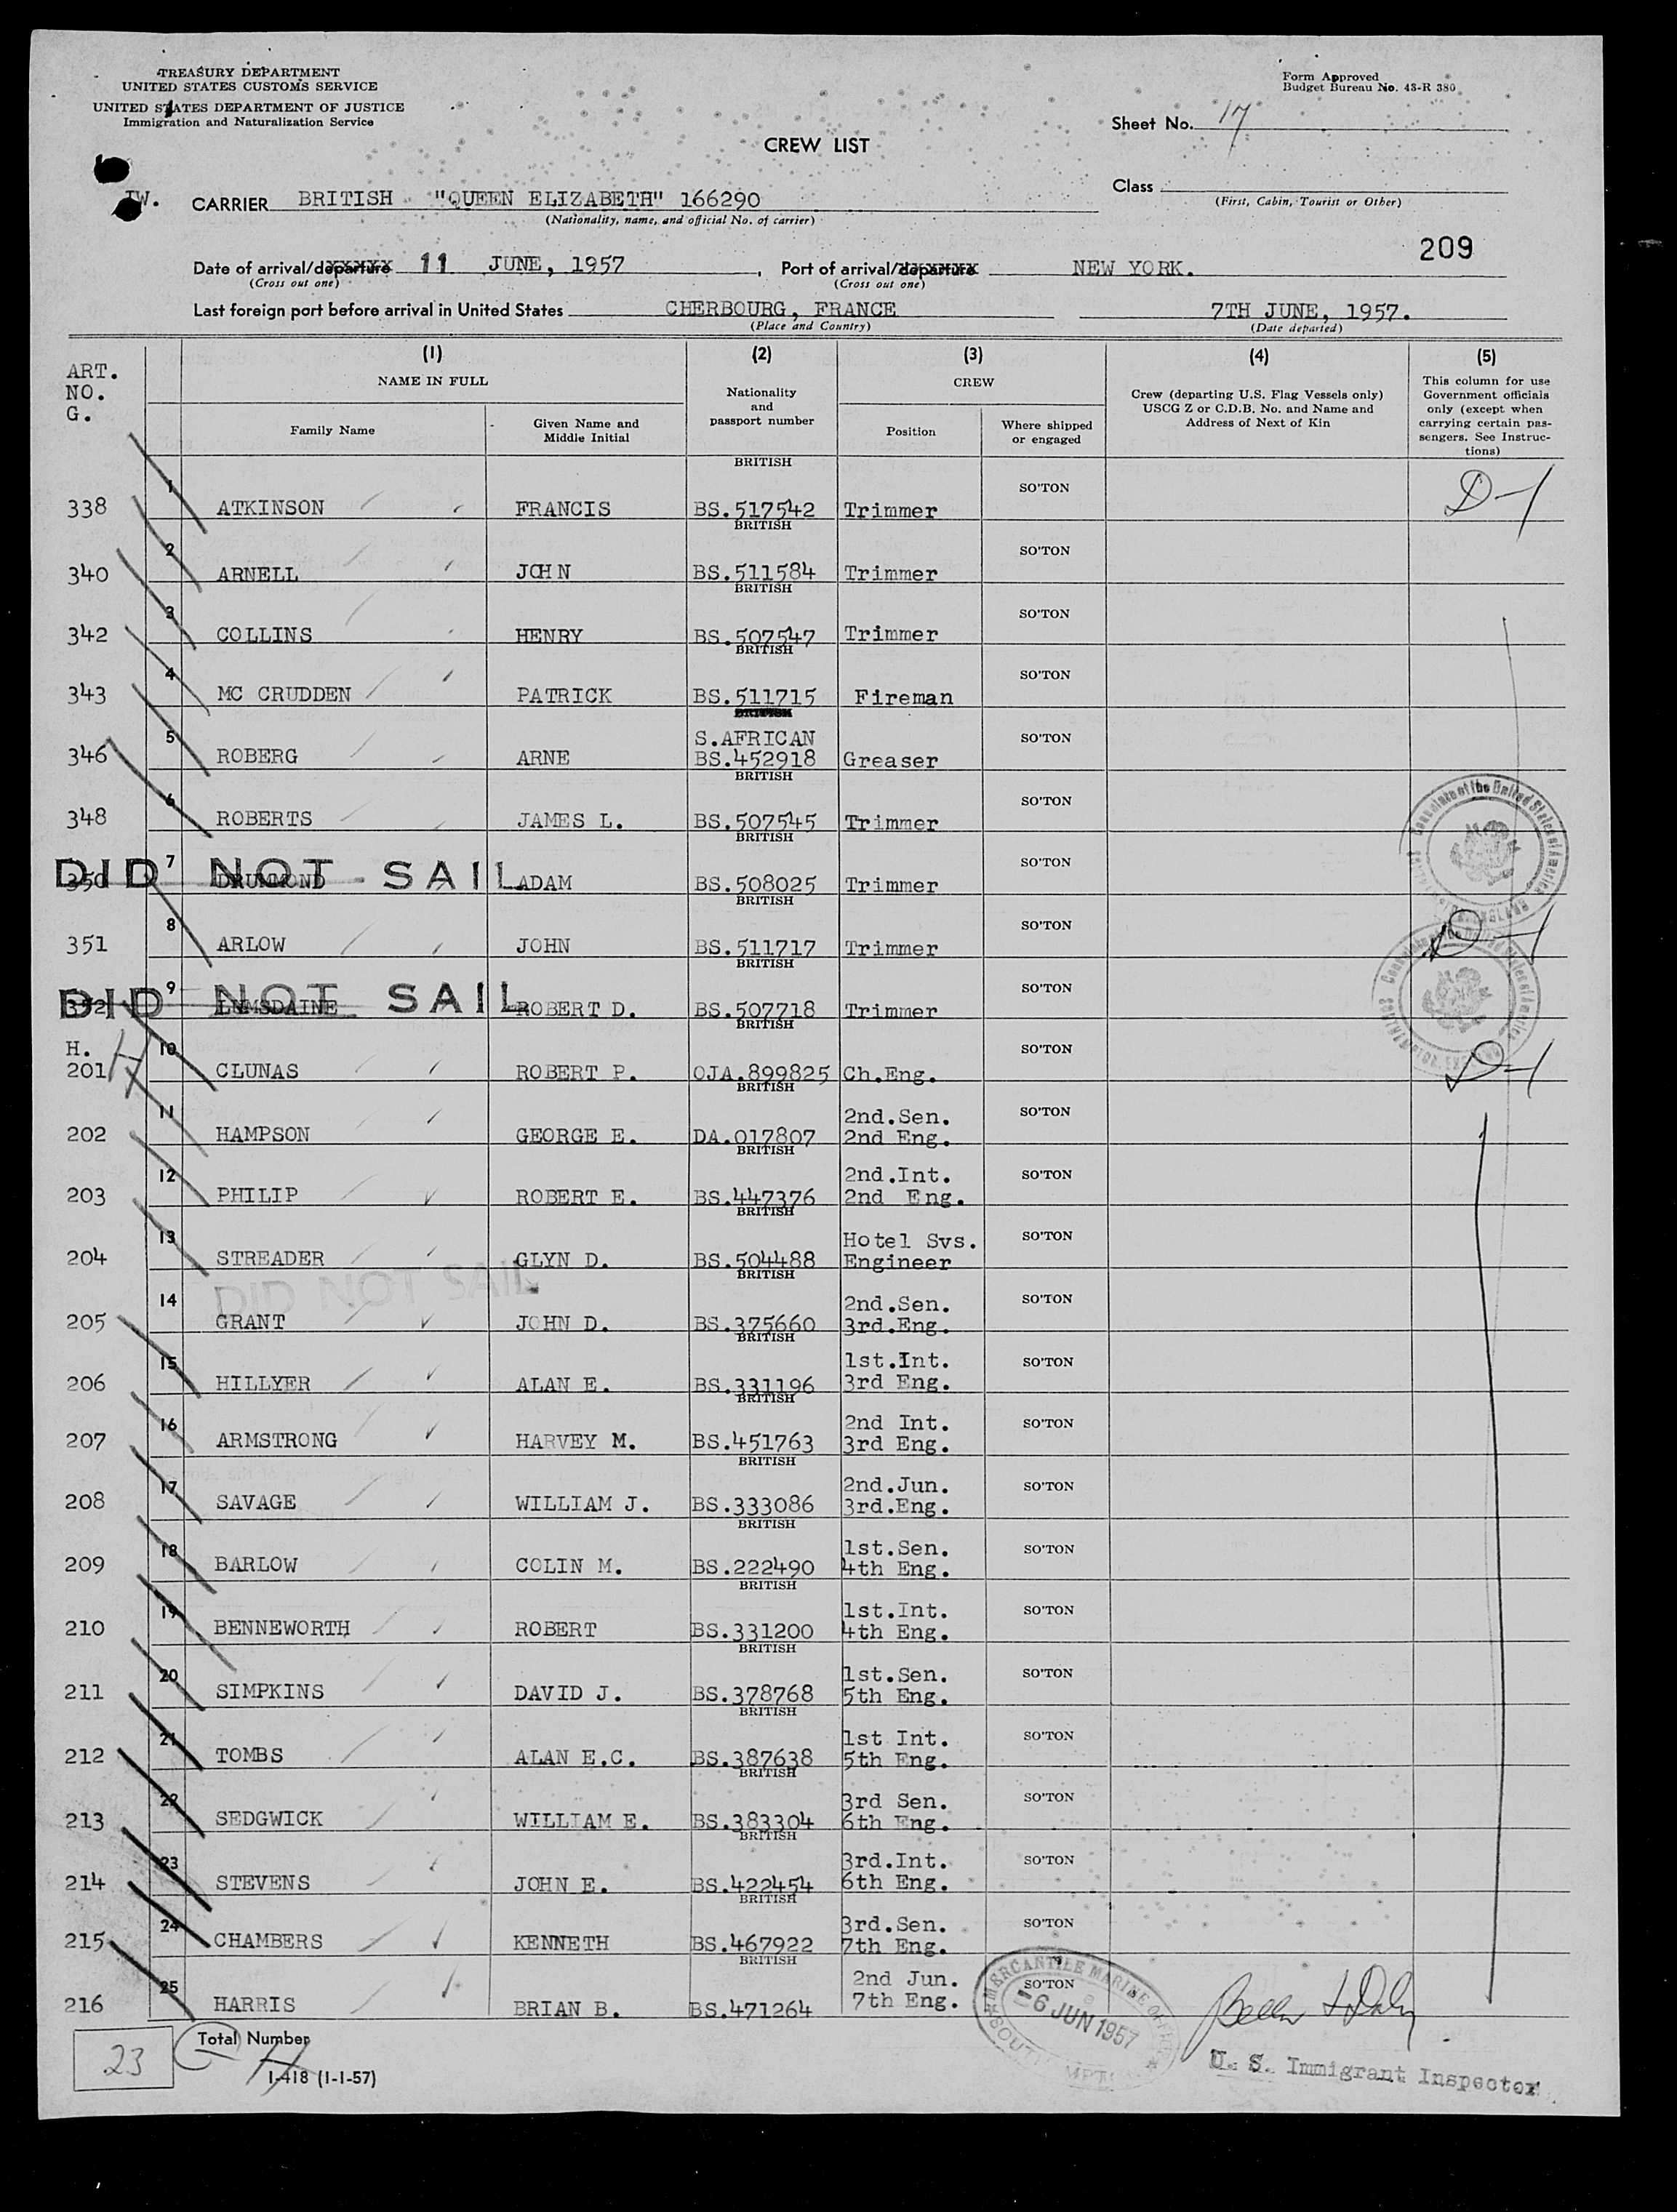 TREASURY DEPARTMENT
UNITED STATES CUSTOMS SERVICE
UNITED STATES DEPARTMENT OF JUSTICE
Immigration and Naturalization Service
Form Approved
Budget Bureau No. 43-R 380
Sheet No. 17
CREW LIST
Class
(First, Cabin, Tourist or Other)
CARRIER BRITISH "QUEEN ELIZABETH" 166290
(Nationality, name, and official No. of carrier)
209
Date of arrival/departure 11 JUNE, 1957, Port of arrival/departure NEW YORK.
(Cross out one) (Cross out one)
Last foreign port before arrival in United States CHERBOURG, FRANCE 7TH JUNE, 1957.
(Place and Country) (Date departed)
ART. NO. G.
(1) (2) (3) (4) (5)
NAME IN FULL
Family Name
Given Name and Middle Initial
Nationality and passport number
CREW
Position
Where shipped or engaged
Crew (departing U.S. Flag Vessels only) USCG Z or C.D.B. No. and Name and Address of Next of Kin
This column for use Government officials only (except when carrying certain passengers. See Instructions)
338 1 ATKINSON FRANCIS BRITISH BS.517542 Trimmer SO'TON D-1
340 2 ARNELL JOHN BRITISH BS.511584 Trimmer SO'TON
342 3 COLLINS HENRY BRITISH BS.507547 Trimmer SO'TON
343 4 MC CRUDDEN PATRICK BRITISH BS.511715 Fireman SO'TON
346 5 ROBERG ARNE BRITISH S.AFRICAN BS.452918 Greaser SO'TON
348 6 ROBERTS JAMES L. BRITISH BS.507545 Trimmer SO'TON
350 7 DRUMMOND ADAM BRITISH BS.508025 Trimmer SO'TON
DID NOT SAIL
351 8 ARLOW JOHN BRITISH BS.511717 Trimmer SO'TON D-1
352 9 LUMSDAINE ROBERT D. BRITISH BS.507718 Trimmer SO'TON
DID NOT SAIL
H.
201 10 CLUNAS ROBERT P. BRITISH OJA.899825 Ch.Eng. SO'TON D-1
202 11 HAMPSON GEORGE E. BRITISH DA.017807 2nd.Sen. 2nd Eng. SO'TON
203 12 PHILIP ROBERT E. BRITISH BS.447376 2nd.Int. 2nd Eng. SO'TON
204 13 STREADER GLYN D. BRITISH BS.504488 Hotel Svs. Engineer SO'TON
DID NOT SAIL
205 14 GRANT JOHN D. BRITISH BS.375660 2nd.Sen. 3rd.Eng. SO'TON
206 15 HILLYER ALAN E. BRITISH BS.331196 1st.Int. 3rd Eng. SO'TON
207 16 ARMSTRONG HARVEY M. BRITISH BS.451763 2nd Int. 3rd Eng. SO'TON
208 17 SAVAGE WILLIAM J. BRITISH BS.333086 2nd.Jun. 3rd.Eng. SO'TON
209 18 BARLOW COLIN M. BRITISH BS.222490 1st.Sen. 4th Eng. SO'TON
210 19 BENNEWORTH ROBERT BRITISH BS.331200 1st.Int. 4th Eng. SO'TON
211 20 SIMPKINS DAVID J. BRITISH BS.378768 1st.Sen. 5th Eng. SO'TON
212 21 TOMBS ALAN E.C. BRITISH BS.387638 1st Int. 5th Eng. SO'TON
213 22 SEDGWICK WILLIAM E. BRITISH BS.383304 3rd Sen. 6th Eng. SO'TON
214 23 STEVENS JOHN E. BRITISH BS.422454 3rd.Int. 6th Eng. SO'TON
215 24 CHAMBERS KENNETH BRITISH BS.467922 3rd.Sen. 7th Eng. SO'TON
216 25 HARRIS BRIAN B. BRITISH BS.471264 2nd Jun. 7th Eng. SO'TON
MERCANTILE MARINE
6 JUN 1957
Total Number
23
I-418 (1-1-57)
U. S. Immigrant Inspector